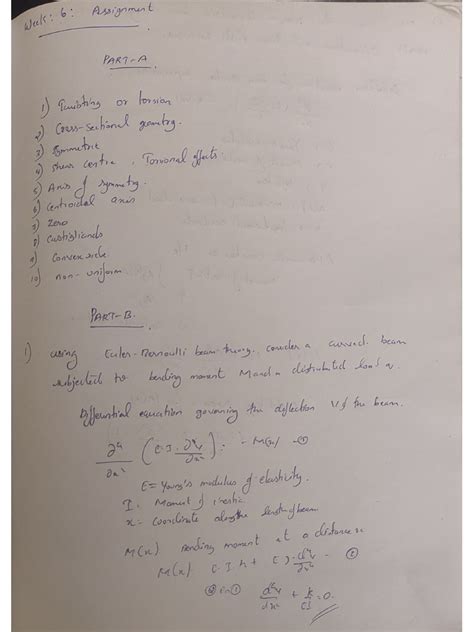 Week: 6: Assignment
PART-A
1) Twisting or torsion
2) Cross-sectional geometry.
3) Symmetric
4) Shear centre, Torsional effects
5) Axis of symmetry.
6) Centroidal axis
7) Zero
8)
9) Convex side
10) non-uniform
PART-B.
1) using Euler-Bernoulli beam theory, consider a curved beam
subjected to bending moment M and a distributed load q.
Differential equation governing the deflection V of the beam.
∂²/∂x² (E.I. ∂²v/∂x²) = -M(x) -①
E= Young's modulus of elasticity.
I = Moment of inertia
x = coordinate along the length of beam
M(x) Bending moment at a distance x
M(x) E.I
② in ① d²v/dx² + /EI = 0.